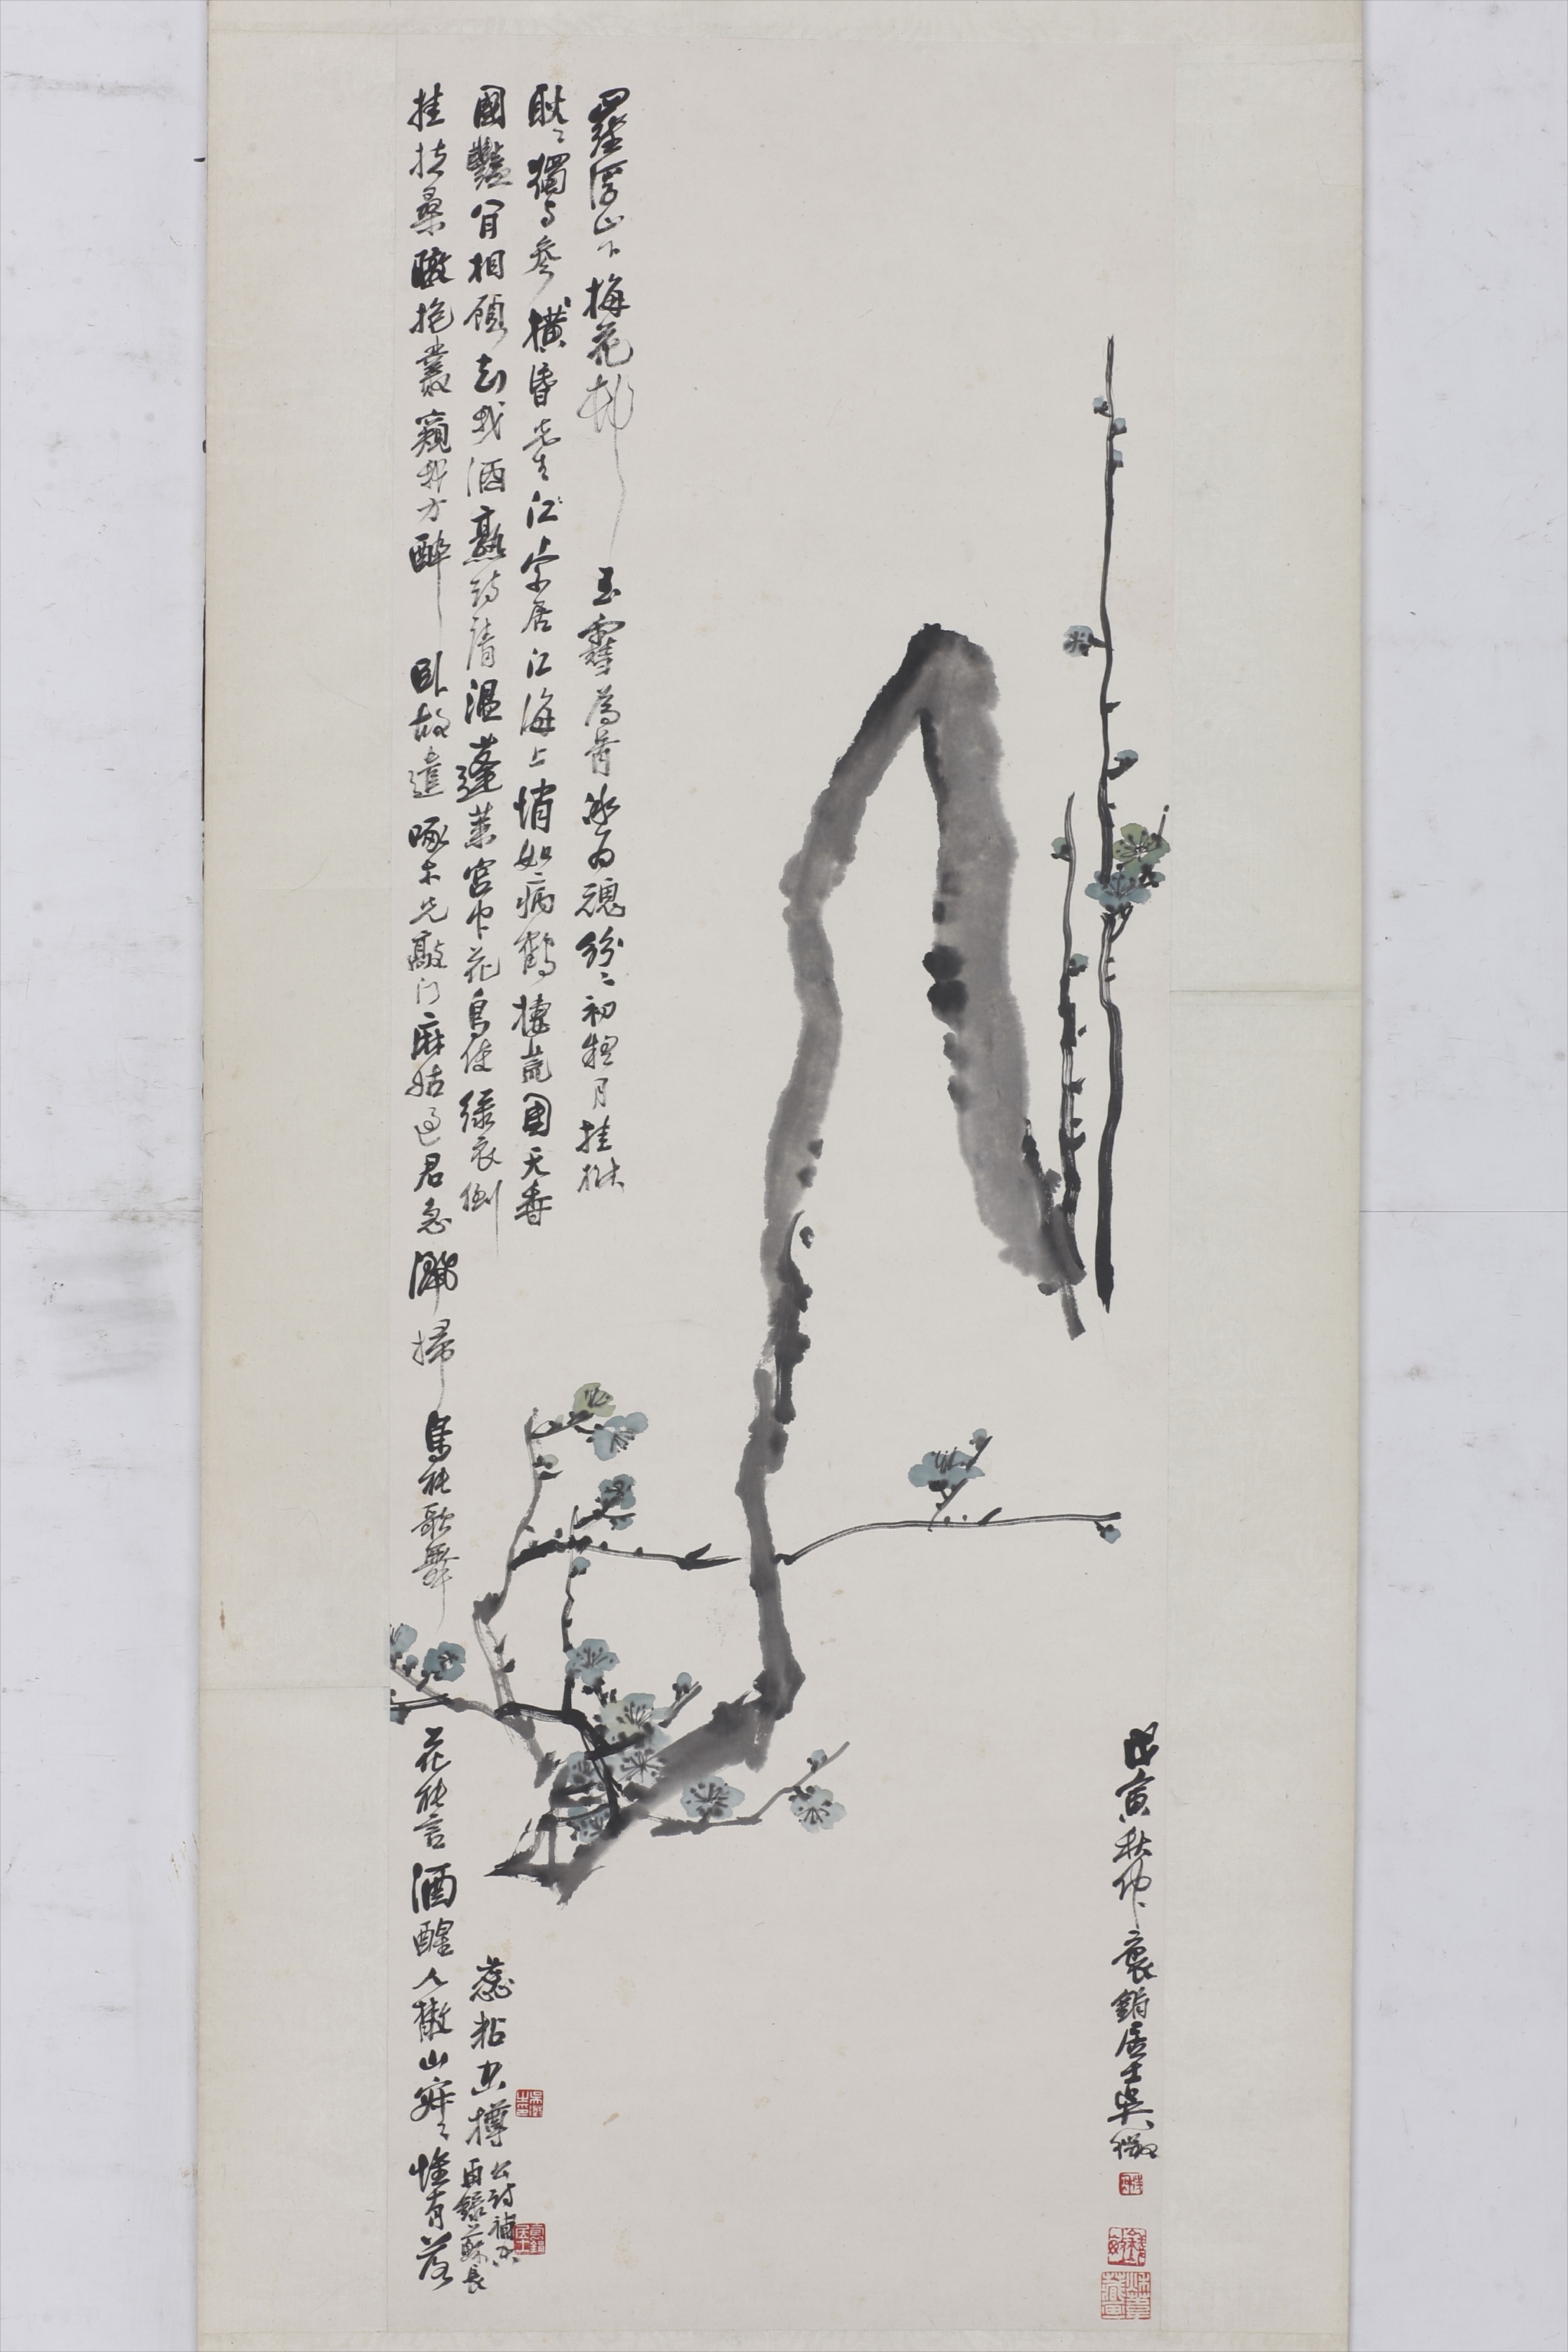 戊寅秋仲袌鋗居士吳徵
羅浮山下梅花村玉雪為骨冰為魂紛〻初疑月挂樹
耿〻獨与參橫昏先生江索居江海上悄如病鶴棲荒園天香
國豔肎相顧知我酒熟詩清溫蓬萊宮中花鳥使綠衣倒
挂扶桑暾抱叢窺我方醉臥故遣啄木先敲門麻姑過君急灑掃鳥能歌舞花能言酒醒人散山寂〻惟有落
蕊粘空樽
再錄蘇長
公詩補空
吳徵之印
袌鋗居士